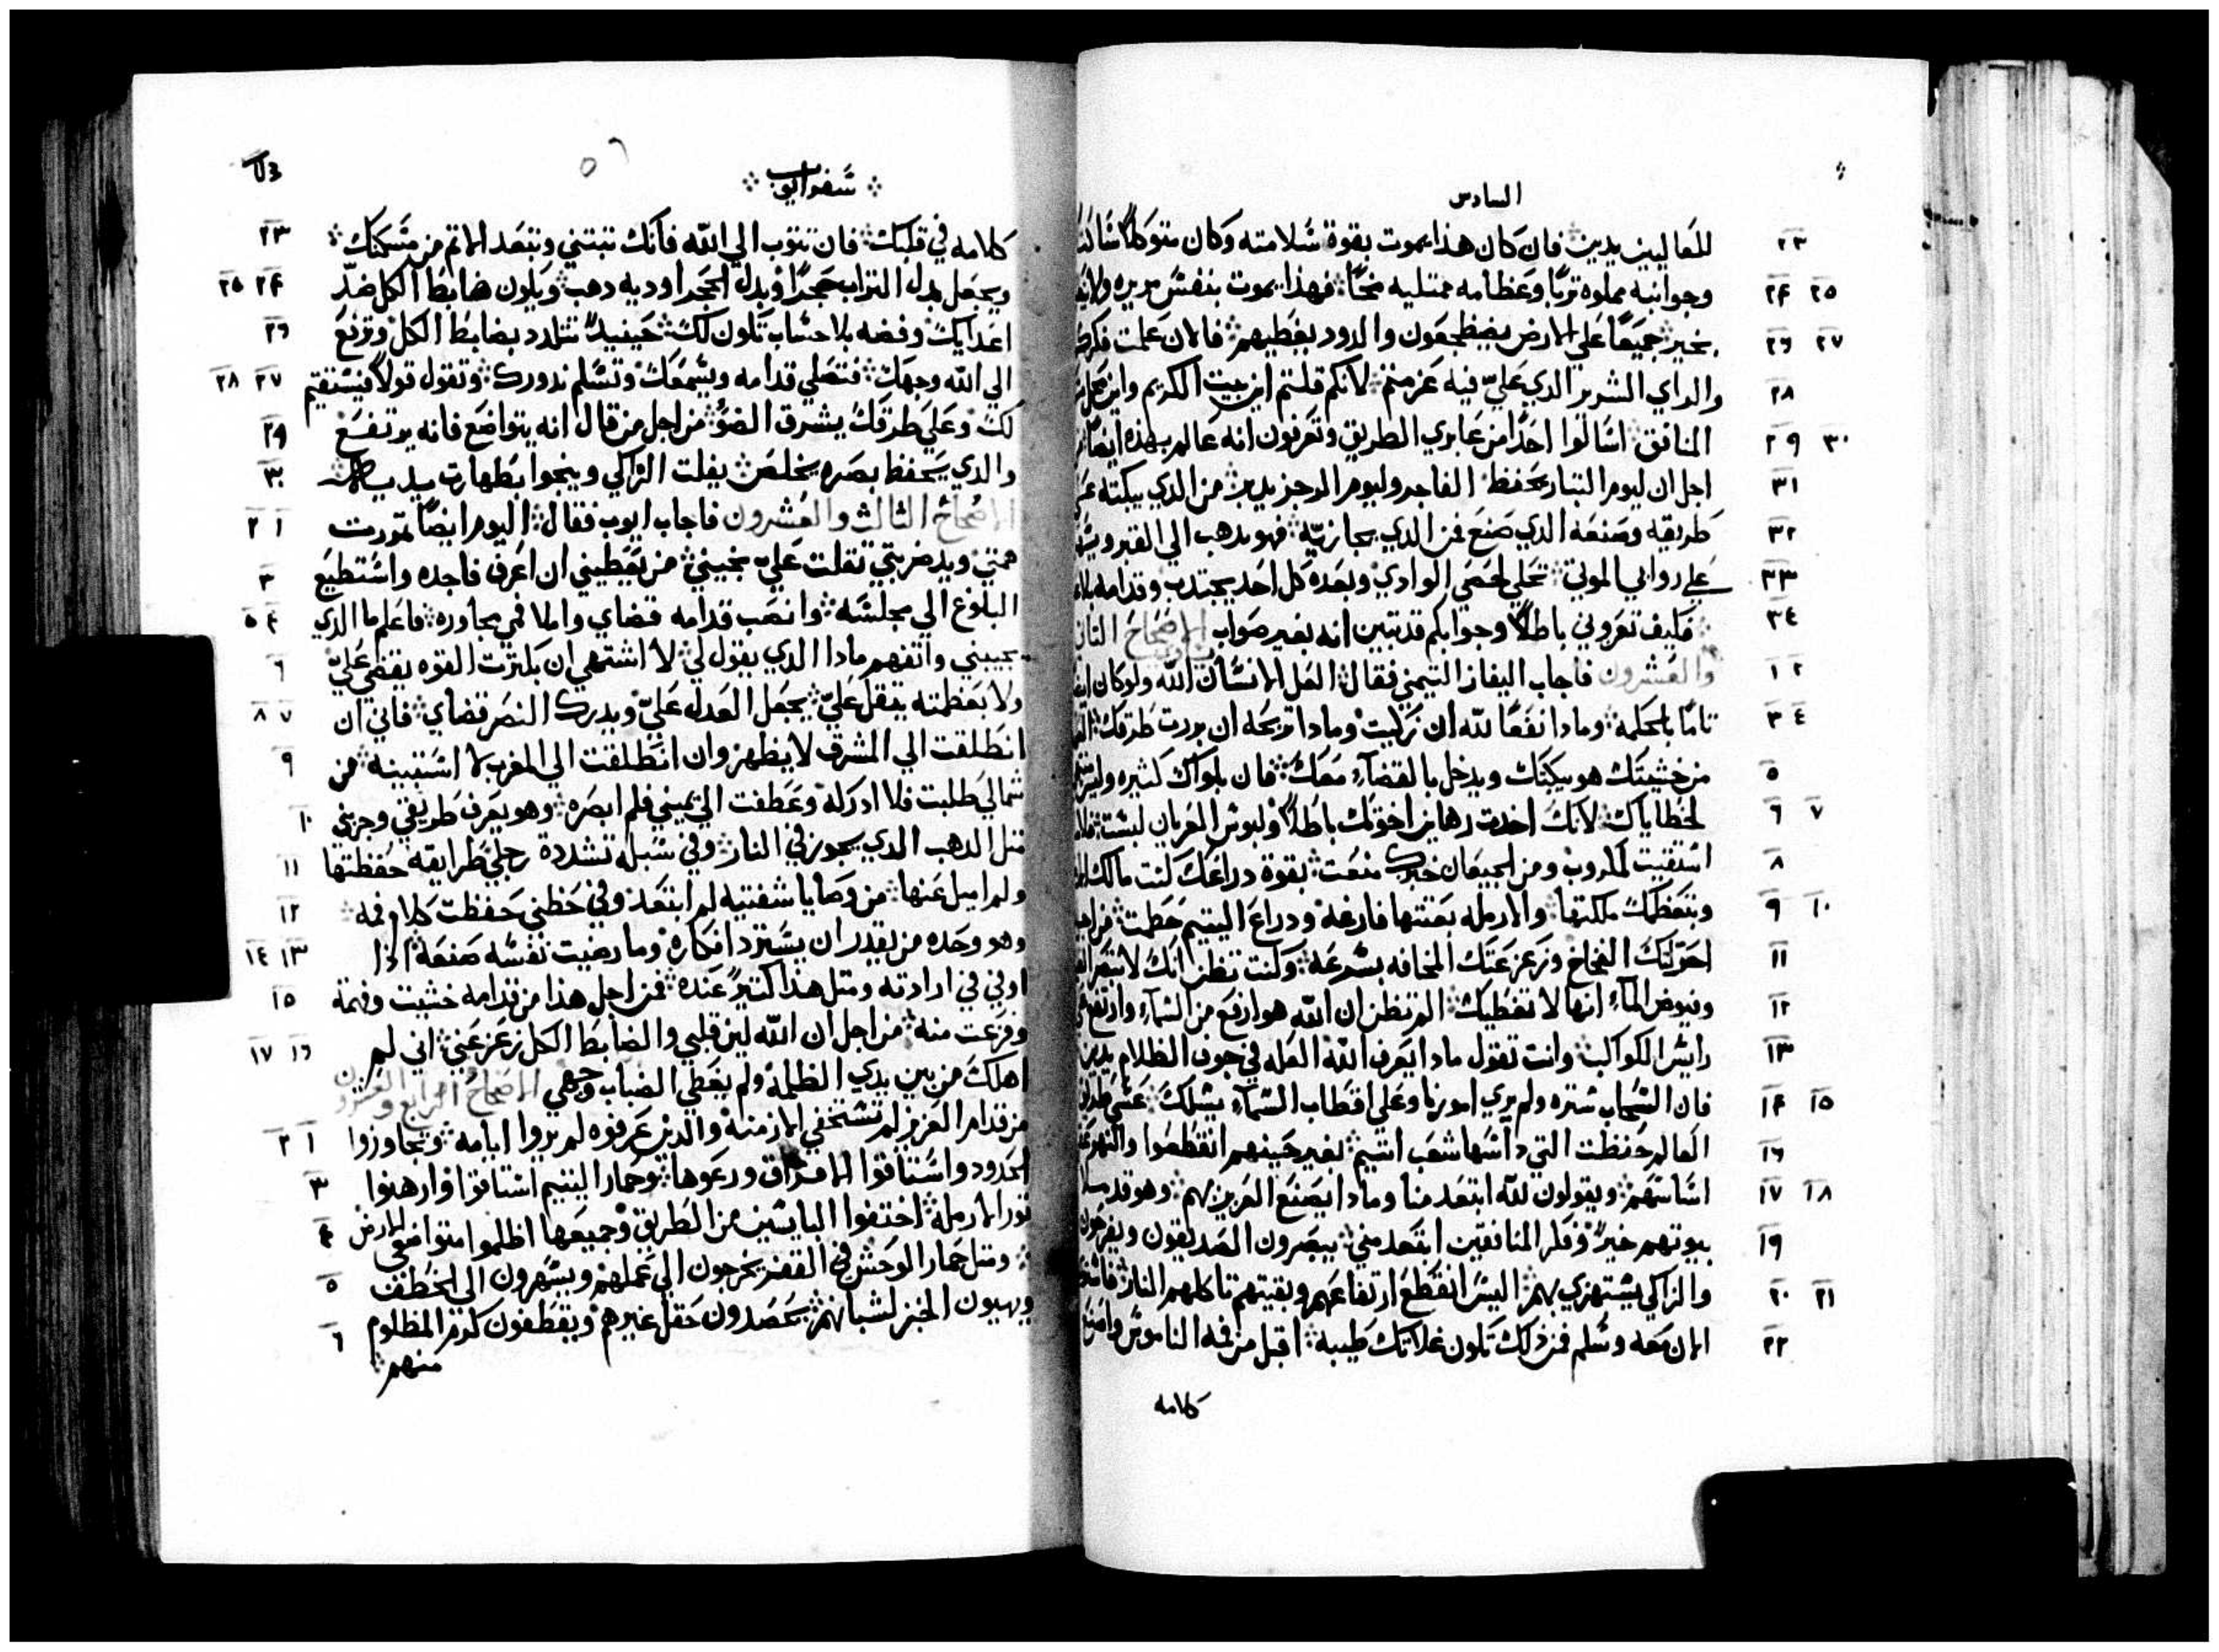 السادس
للعاليين يدين فان كان هذا يموت بقوة سلامته وكان متوكلاً
٢٣
وجوانبه مملوه تربًا وعظامه ممتليه مخًا فهذا يموت بنفس مريره
٢٤ ٢٥
بخير جميعًا علي الارض يضطجعون والدود يغطيهم فالان علمت
٢٦ ٢٧
والراي الشرير الذي عليّ فيه عزمتم لانكم قلتم اين بيت الكريم واين
٢٨
المنافق اسالوا احدًا من عابري الطريق وتعرفون انه عالم بهذه
٢٩ ٣٠
اجل ان ليوم التبار يحفظ الفاجر وليوم الرجز يدين من الذي يبكته
٣١
طريقه وصنعه الذي صنع فمن الذي يجازيه فهو يدهب الي القبر
٣٢
علي روابي الموتي تحلي لحصي الوادي وبعده كل احد يجتدب وقدامه
٣٣
فكيف تعزوني باطلاً وجوابكم قد تبين انه بغير صواب الاصحاح الثاني
٣٤
والعشرون فاجاب اليفاز التيمني فقال العل الانسان الله ولو كان
١ ٢
تامًا بالحكمة ومادا نفعًا لله ان زكيت ومادا تربحه ان بررت طرقك
٣ ٤
من خشيتك هو يبكتك ويدخل بالقضاء معك فان بلواك كثيره
٥
لخطاياك لانك اخدت رهاين اخوتك باطلاً ولبوس العريان
٦ ٧
استقيت المكروب ومن الجيعان خبزك منعت بقوة دراعك كنت مالك
٨
وبتعظمك ملكتها والارمله بعتتها فارغه ودراع اليتيم حطمت
٩ ١٠
احوتك الفخاخ وزعزعتك المخافه بسرعه وكنت تظن انك لا
١١
وفيوض الماء انها لا تغطيك الم تظن ان الله هو ارفع من السماء
١٢
رايس الكواكب وانت تقول مادا يعرف الله العله في جوف الظلام يدين
١٣
فان السحاب ستره ولم يري امورنا وعلي اقطاب السماء يسلك
١٤ ١٥
العالم حفظت التي داسها شعب اتيم لغير حينهم انقطعوا والنهر
١٦
اساستهم ويقولون لله ابتعد منا ومادا يصنع العزيز بهم وهو قد
١٧ ١٨
بيوتهم خيرًا وفكر المنافقين ابتعد مني يبصرون الصديقون ويفرحون
١٩
والزاكي يستهزي بهم اليس انقطع ارتفاعهم وبقيتهم تاكلهم النار
٢٠ ٢١
الان معه وسلم فمن دلك تكون غلاتك طيبه اقبل من فمه الناموس
٢٢
كلامه
سفر ايوب
كلامه في قلبك فان تتوب الي الله فانك تبتني وتبعد الاتم من مسكنك
٢٣
ويجعل بدل التراب حجرًا وبدل الحجر اوديه دهب ويكون ضابط الكل ضد
٢٤ ٢٥
اعدايك وفضه بلا حساب تكون لك حينيدٍ تتلدد بضابط الكل وترفع
٢٦
الي الله وجهك فتصلي قدامه ويسمعك وتسلم ندورك وتقول قولاً فيستقيم
٢٧ ٢٨
لك وعلي طرقك يشرق الضو من اجل من قال انه يتواضع فانه يرتفع
٢٩
والذي يحفظ بصره يخلص يفلت الزاكي وينجوا بطهارت يديه
٣٠
الاصحاح الثالث والعشرون فاجاب ايوب فقال اليوم ايضًا تمررت
١ ٢
همتي ويد ضربتي تقلت علي نحيبي من يعطيني ان اعرف فاجده واستطيع
٣
البلوغ الي مجلسه وانصب قدامه قضاي واملا فمي مجاوره فاعلم ما الذي
٤ ٥
يجيبني واتفهم مادا الذي يقول لي لا اشتهي ان بكترت القوه يقضي عليّ
٦
ولا بعظمته يتقل عليّ يجعل العدله عليّ ويدرك النصر قضاي فاني ان
٧ ٨
انطلقت الي المشرق لا يظهر وان انطلقت الي المغرب لا استبينه من
٩
شمالي طلبت فلا ادركه وعطفت الي يميني فلم ابصره وهو يعرف طريقي وجربني
١٠
متل الدهب الذي يجوز في النار وفي سبله تشددة رجلي طرايقه حفظتها
١١
ولم اميل عنها من وصايا شفتيه لم ابتعد وفي حظني حفظت كلام فمه
١٢
وهو وحده من يقدر ان يسترد افكاره وما رضيت نفسه صنعه اذا
١٣ ١٤
اوفي في ارادته ومتل هذا كتيرًا عنده فمن اجل هذا من قدامه خشيت وفهمة
١٥
وفزعت منه من اجل ان الله لين قلبي والضابط الكل زعزعني اني لم
١٦ ١٧
اهلك من بين يدي الظلمة ولم يغطي الضباب وجهي الاصحاح الرابع والعشرون
من قدام العزيز لم تستخفي الازمنة والذين عرفوه لم يروا ايامه وتجاوزوا
١ ٢
الحدود واستاقوا ورعوها وحمار اليتيم استاقوا وارهنوا
٣
تور الارمله اختفوا البايسين من الطريق وجميعها اظلموا متواضعي الارض
٤
ومتل حمار الوحش في القفر يخرجون الي عملهم ويسهرون الي الخطف
٥
ويهيون الخبز لشبانهم يحصدون حقل غيرهم ويقطفون كرم المظلوم
٦
منهم